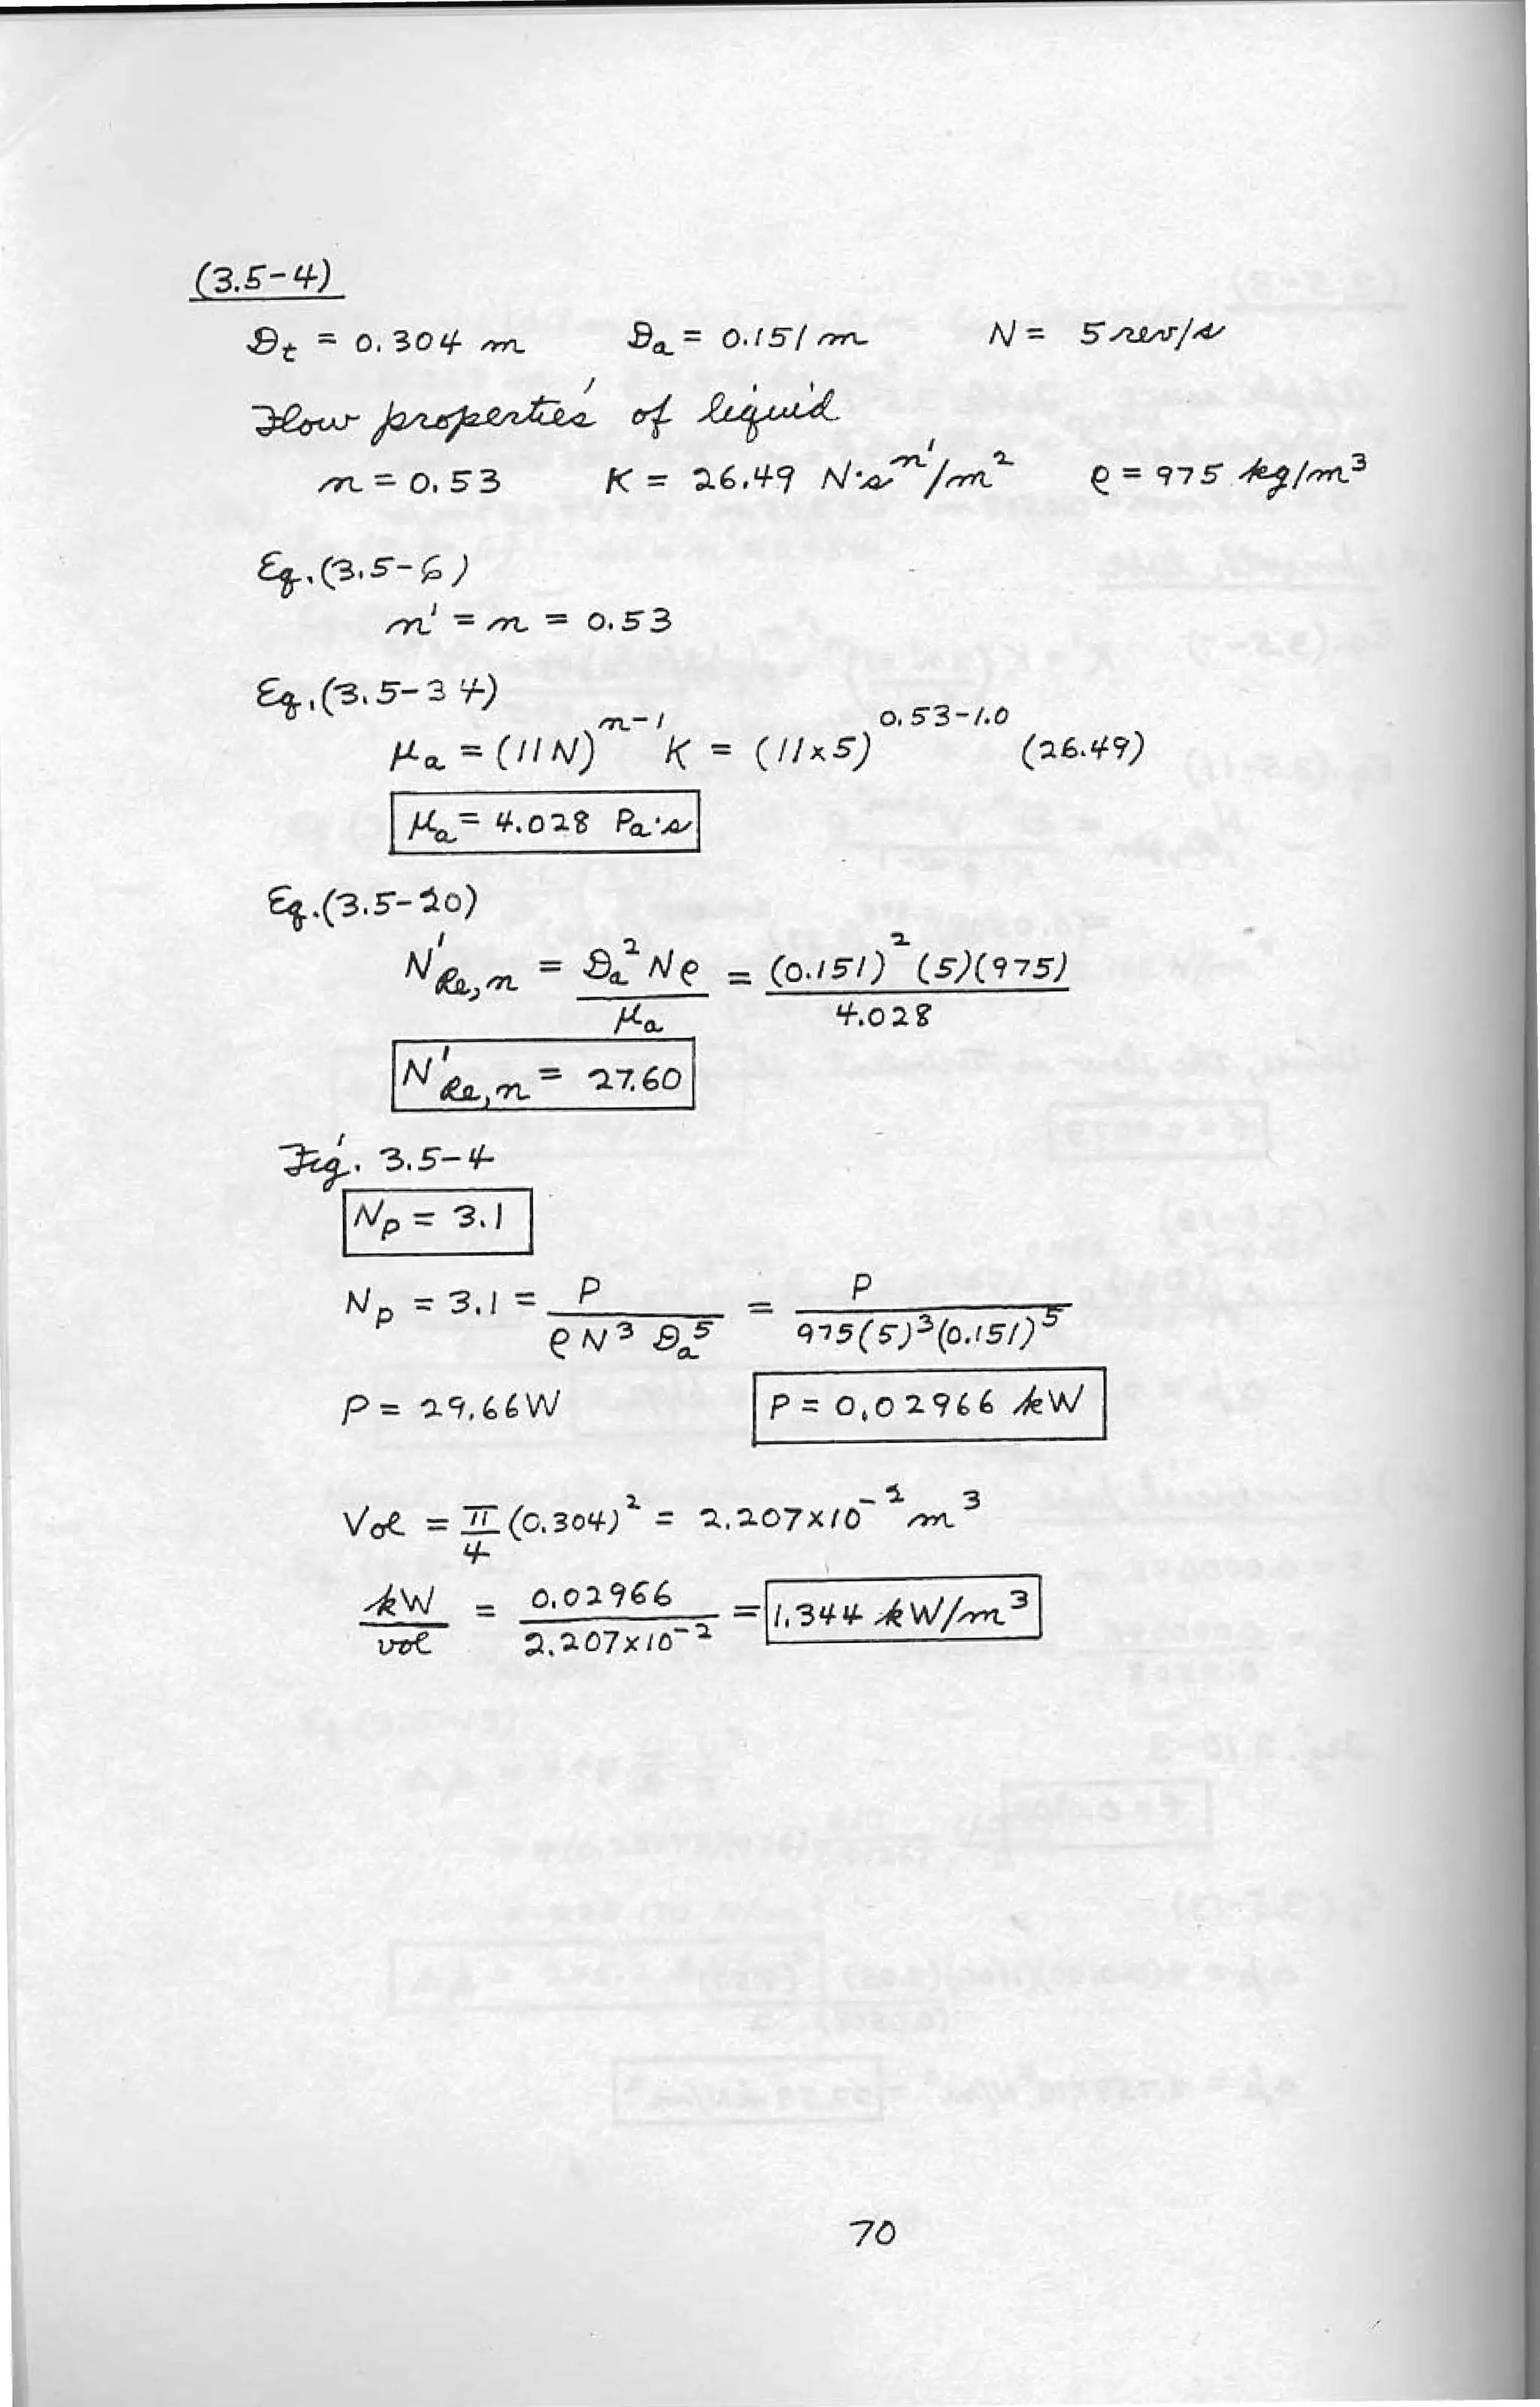 (3.5-4)
Dt = 0.304 m Da = 0.151 m N = 5 rev/s
Flow properties of liquid
n = 0.53 K = 26.49 N·s^n'/m² ρ = 975 kg/m³
Eq.(3.5-6)
n' = n = 0.53
Eq.(3.5-34)
μa = (11N)^n-1 K = (11×5)^0.53-1.0 (26.49)
μa = 4.028 Pa·s
Eq.(3.5-20)
N'Re,n = Da² N ρ / μa = (0.151)² (5)(975) / 4.028
N'Re,n = 27.60
Fig. 3.5-4
Np = 3.1
Np = 3.1 = P / ρ N³ Da⁵ = P / 975(5)³(0.151)⁵
P = 29.66W P = 0.02966 kW
Vol = π/4 (0.304)² = 2.207×10⁻² m³
kW/vol = 0.02966 / 2.207×10⁻² = 1.344 kW/m³
70